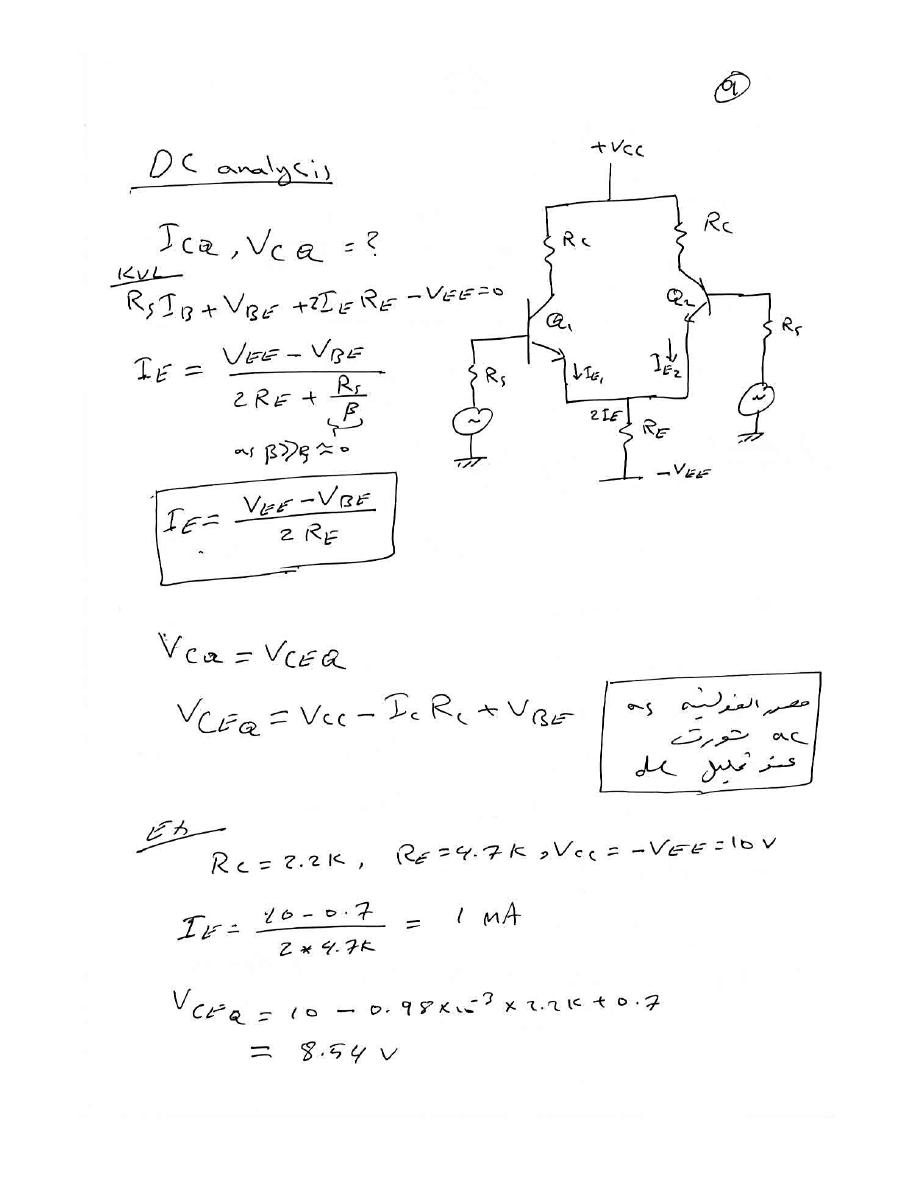 9
DC analysis
I_CQ , V_CQ = ?
KVL
R_S I_B + V_BE + 2I_E R_E - V_EE = 0
I_E = (V_EE - V_BE) / (2R_E + R_S/β)
as β>> ≈ 0
I_E = (V_EE - V_BE) / (2 R_E)
+Vcc
Rc
Rc
Q1
Q2
Rs
Rs
↓I_E1
I_E2↓
2I_E
R_E
-V_EE
V_CQ = V_CEQ
V_CEQ = Vcc - Ic Rc + V_BE
مصدر الفولتية as
ac شورت
عند تحليل dc
Ex
Rc = 2.2K , R_E = 4.7K , Vcc = -V_EE = 10 V
I_E = (10 - 0.7) / (2 * 4.7K) = 1 mA
V_CEQ = 10 - 0.98 x 10^-3 x 2.2K + 0.7
= 8.54 V